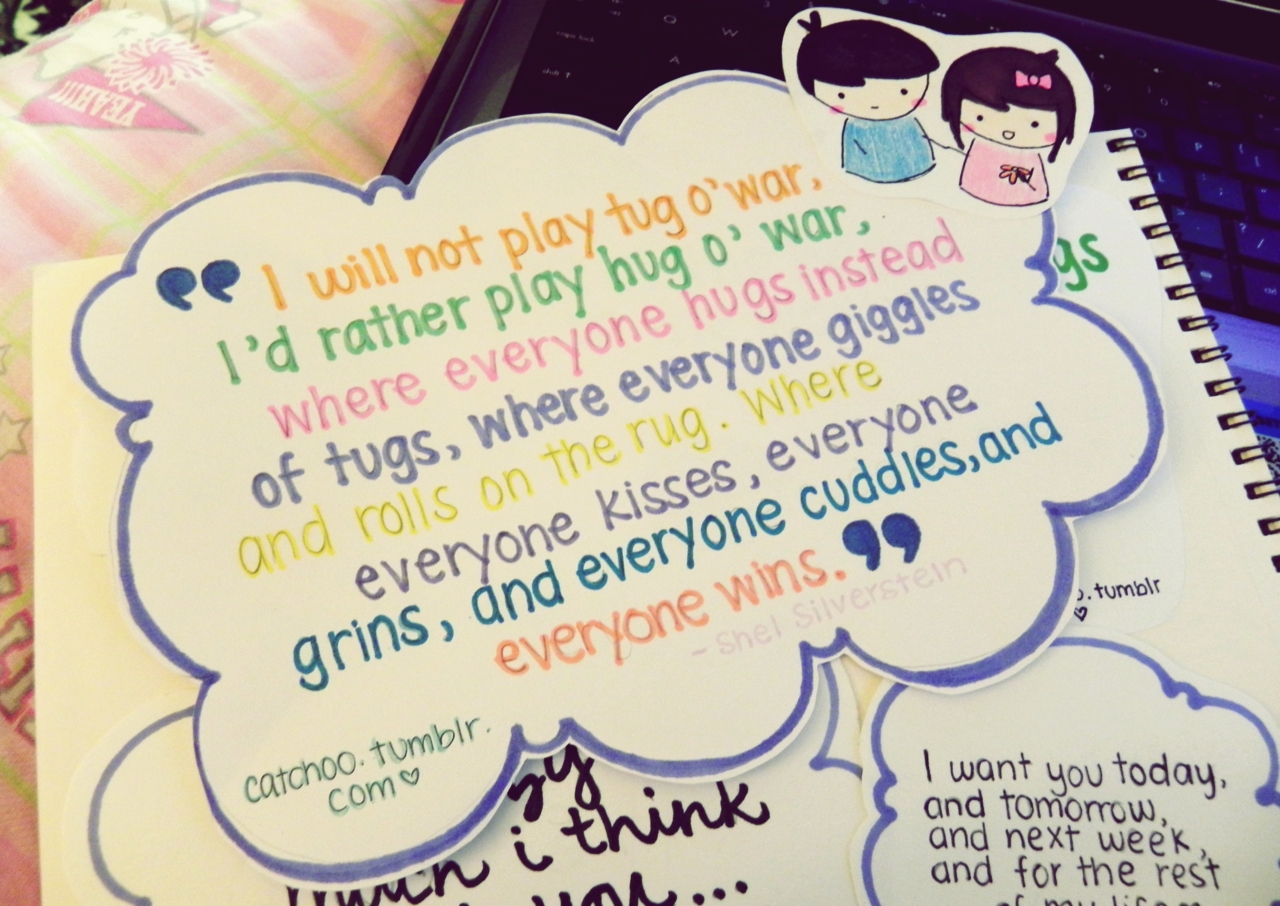 YEAH!!!
" I will not play tug o' war,
I'd rather play hug o' war,
where everyone hugs instead
of tugs, where everyone giggles
and rolls on the rug. Where
everyone kisses, everyone
grins, and everyone cuddles, and
everyone wins. "
- Shel Silverstein
catchoo.tumblr.
com♡
gs
o.tumblr
♡
zy
much i think
you...
I want you today,
and tomorrow,
and next week,
and for the rest
of my life
caps lock
shift ↑
Q
W
A
P
L